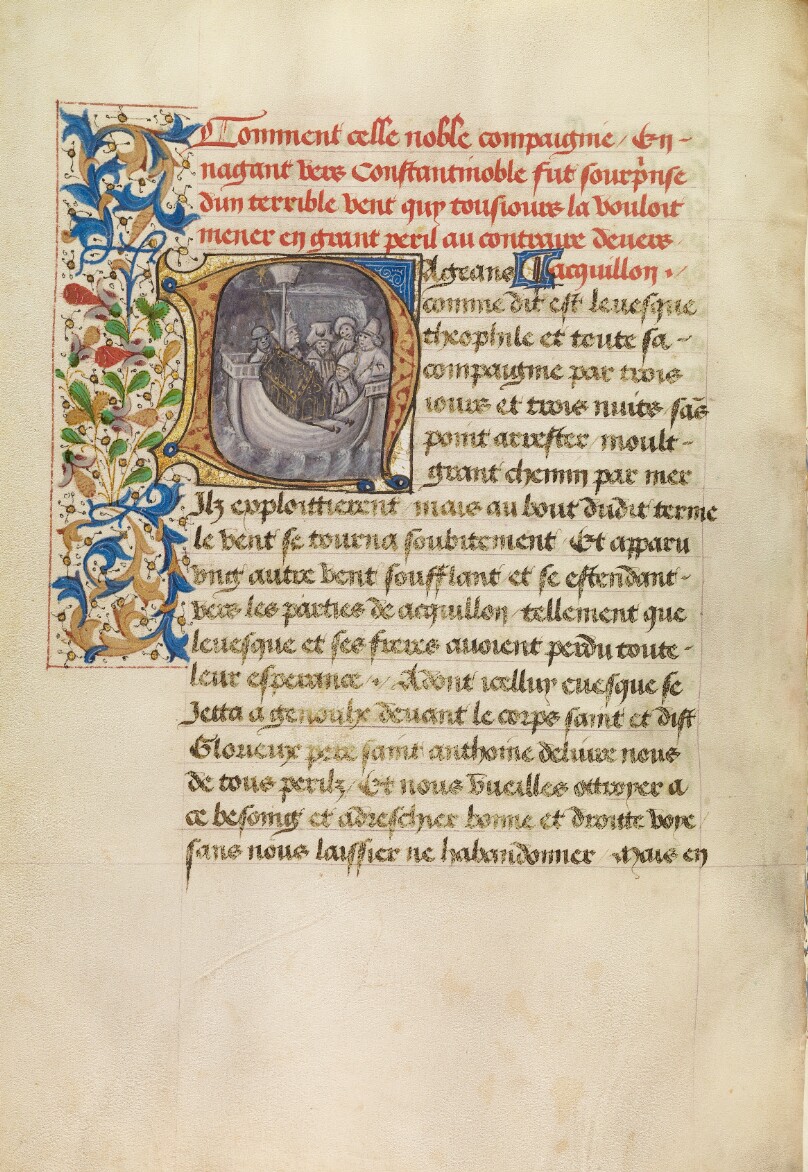 Comment celle noble compaignie / En-
nagant vers Constantinoble fut sourprinse
dun terrible vent quy tousiours la vouloit
mener en grant peril au contraire devers
Nageans acquillon /
comme dit est levesque
theophile et toute sa -
compaignie par trois
iours et trois nuits sãs
point arrester moult -
grant chemin par mer
Ilz exploittierent / mais au bout dudit terme
le vent se tourna soubitement / Et apparu
vng autre vent soufflant et se estendant -
vers les parties de acquillon tellement que
levesque et ses freres avoient perdu toute -
leur esperance / Adont icelluy evesque se
Jetta a genoulx devant le corps saint et dist
Glorieux pere saint anthoine delivre nous
de tous perilz / Et nous vueilles ottroyer a
ce besoing et adreschier bonne et droitte voye
sans nous laissier ne habandonner / Mais en